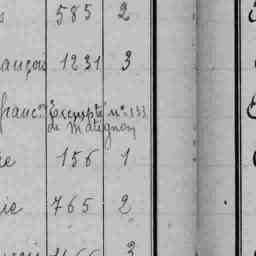 s 585 2
ançois 1231 3
franc Exempté n° 133
de Matignon
re 156 1
ie 765 2
3